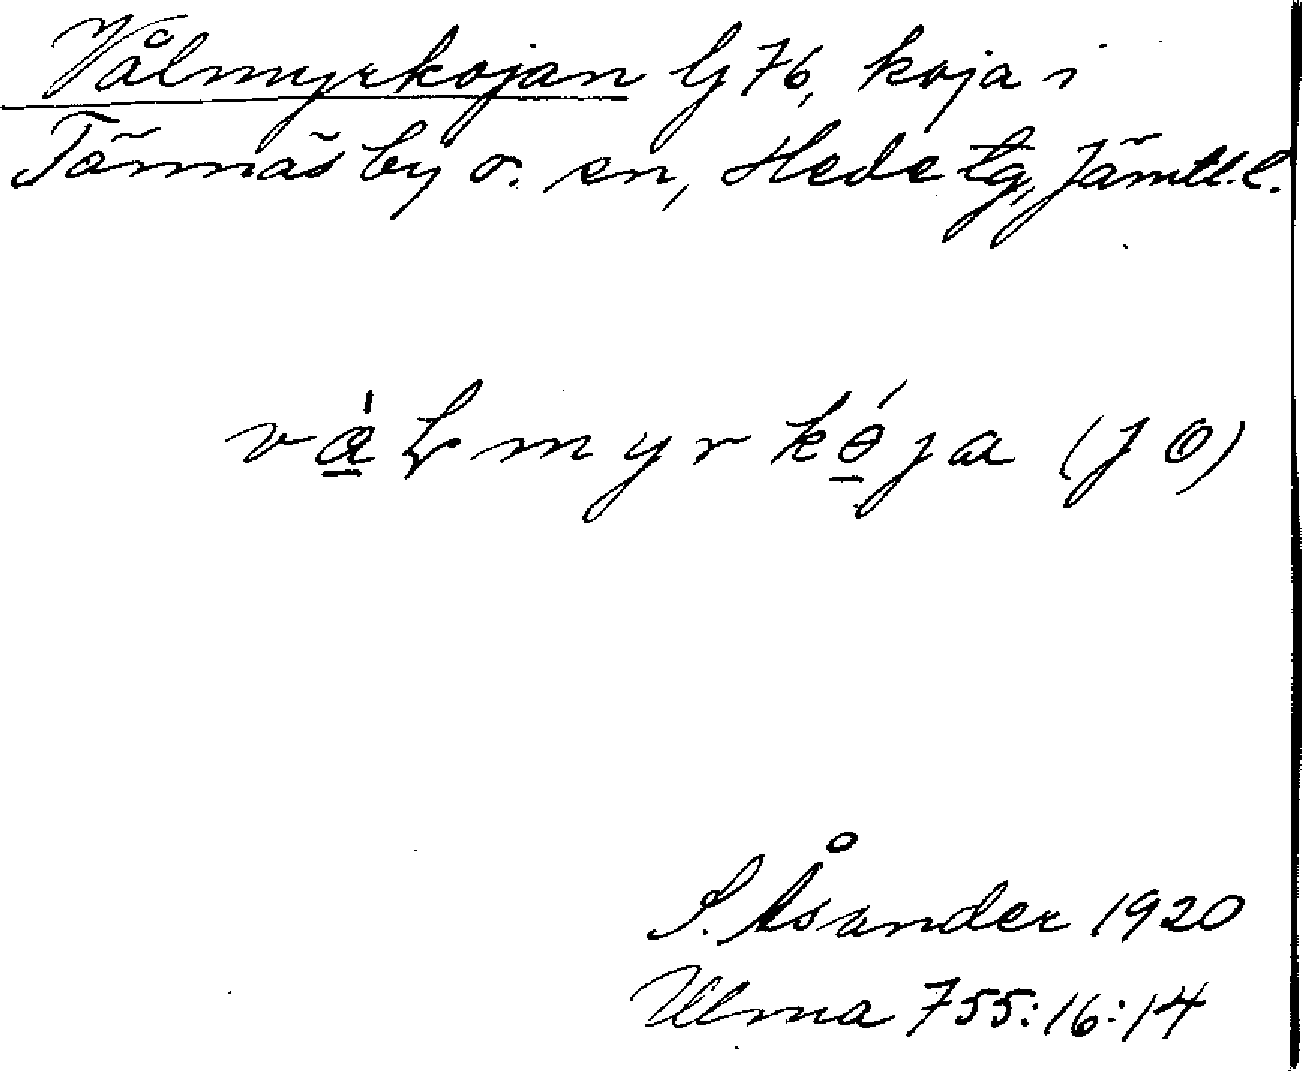 Vålmyrkojan G 76, koja i
Tännäs by o. sn, Hede tg, Jämtl. l.
vå̠̀ɫmyrkó̠ja (JO)
S. Åsander 1920
Ulma 755:16:14